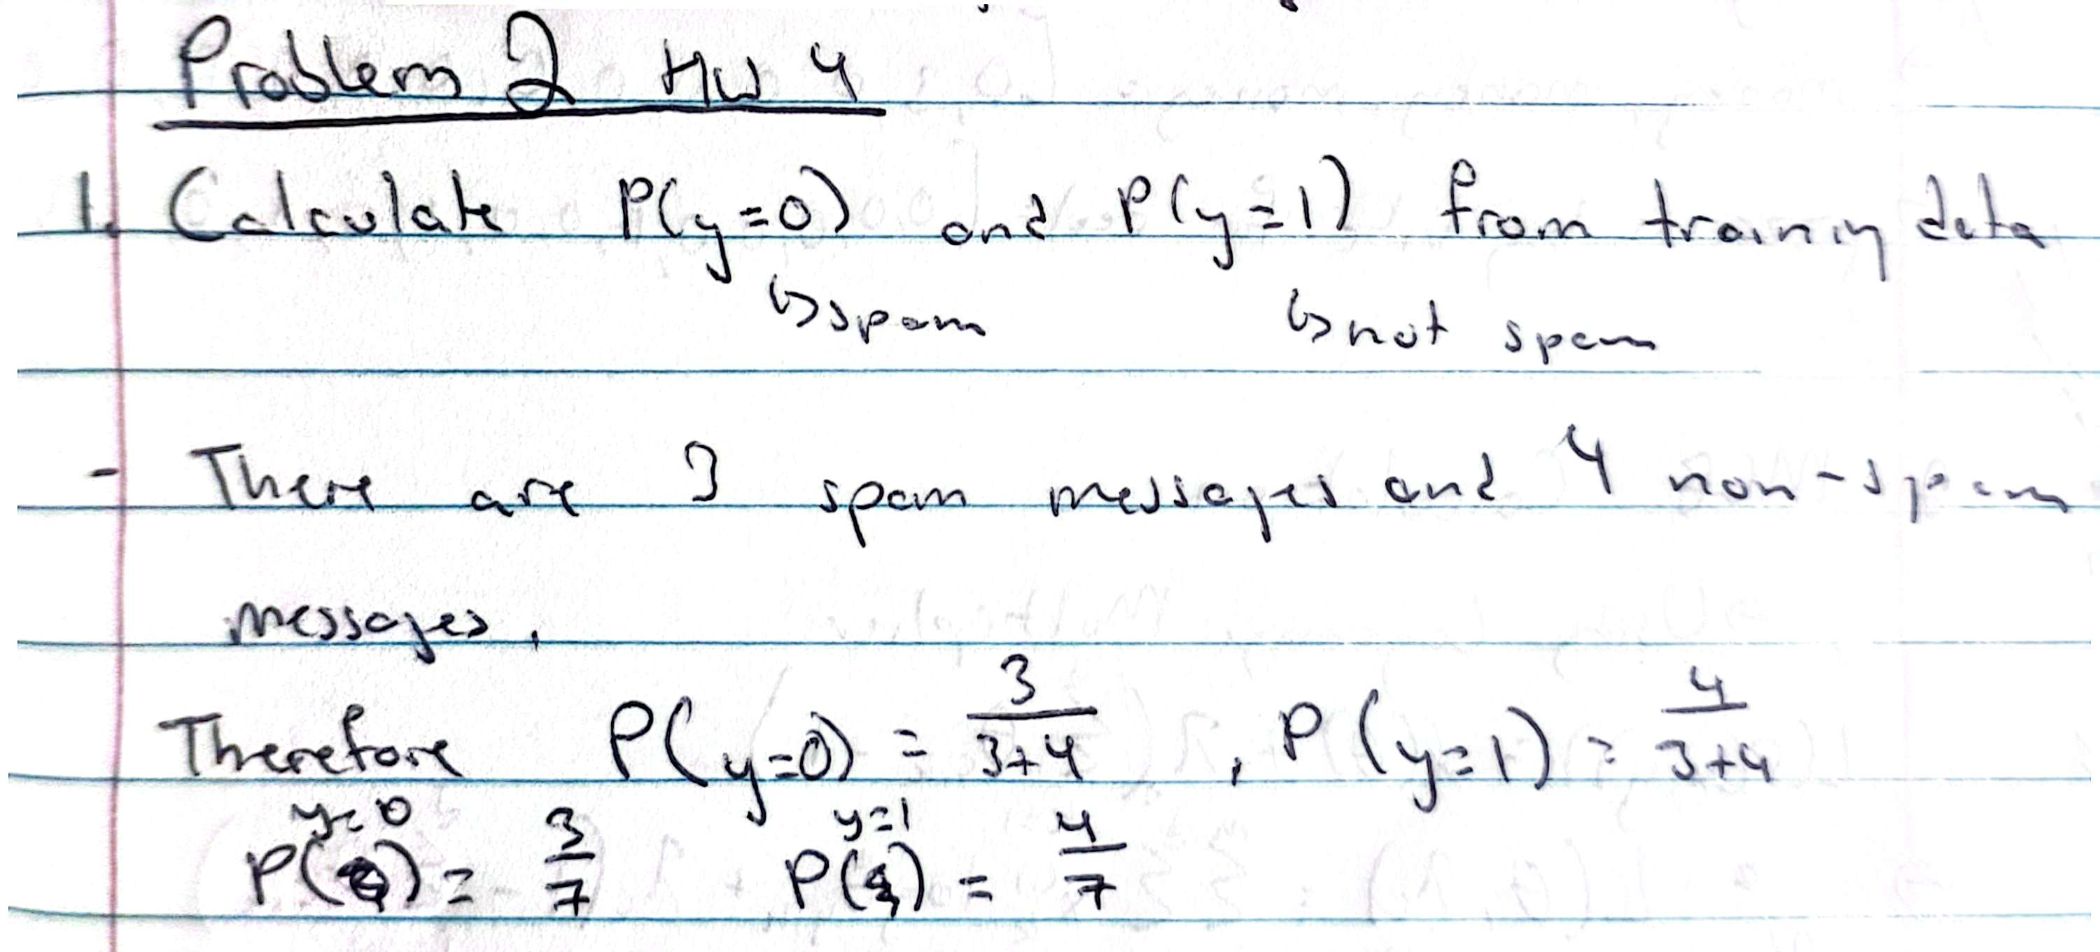 Problem 2 HW 4
1. Calculate P(y=0) and P(y=1) from training data
↳ spam ↳ not spam
- There are 3 spam messages and 4 non-spam
messages.
Therefore P(y=0) = 3/(3+4) , P(y=1) = 4/(3+4)
y=0 y=1
P( ) = 3/7 P( ) = 4/7